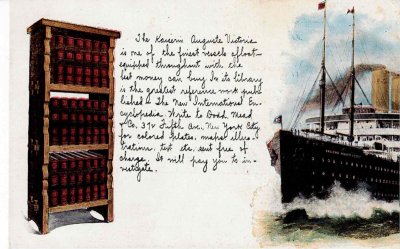 The Kaiserin Auguste Victoria
is one of the finest vessels afloat—
equipped throughout with the
best money can buy. In its library
is the greatest reference work pub-
lished – The New International En-
cyclopædia. Write to Dodd, Mead
& Co. 372 Fifth Ave., New York City
for colored plates, maps, illus-
trations, text etc. sent free of
charge. It will pay you to in-
vestigate.